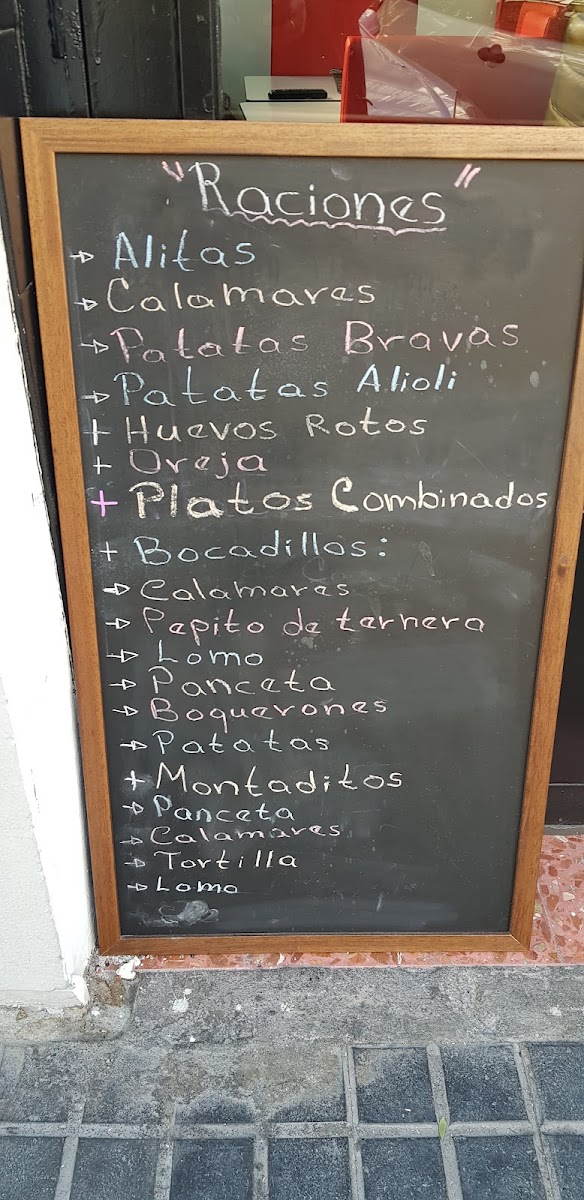 "Raciones"
→ Alitas
→ Calamares
→ Patatas Bravas
→ Patatas Alioli
+ Huevos Rotos
+ Oreja
+ Platos Combinados
+ Bocadillos:
→ Calamares
→ Pepito de ternera
→ Lomo
→ Panceta
→ Boquerones
→ Patatas
+ Montaditos
→ Panceta
→ Calamares
→ Tortilla
→ Lomo